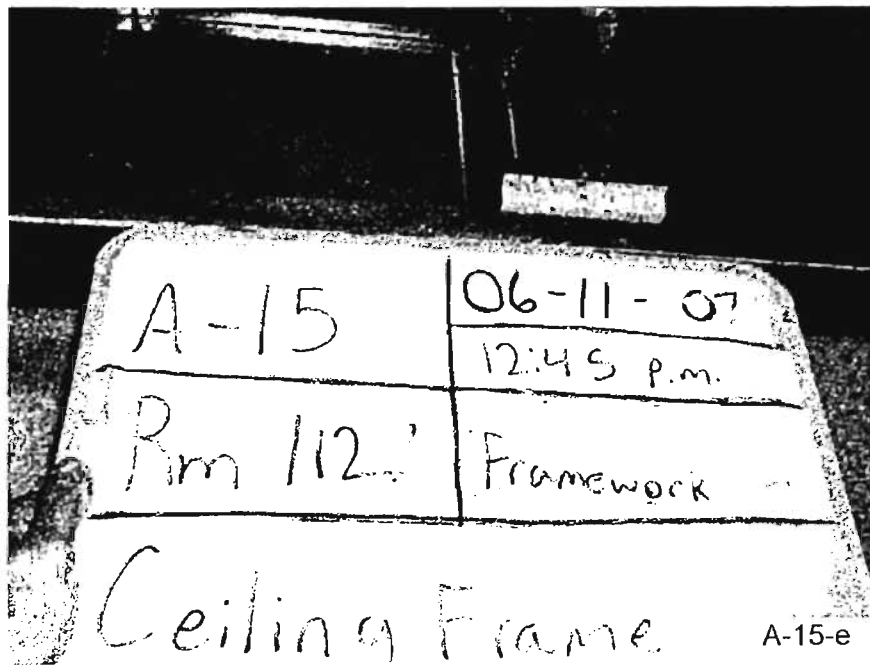 A-15
06-11-07
12:45 p.m.
Rm 112
Framework
Ceiling Frame
A-15-e